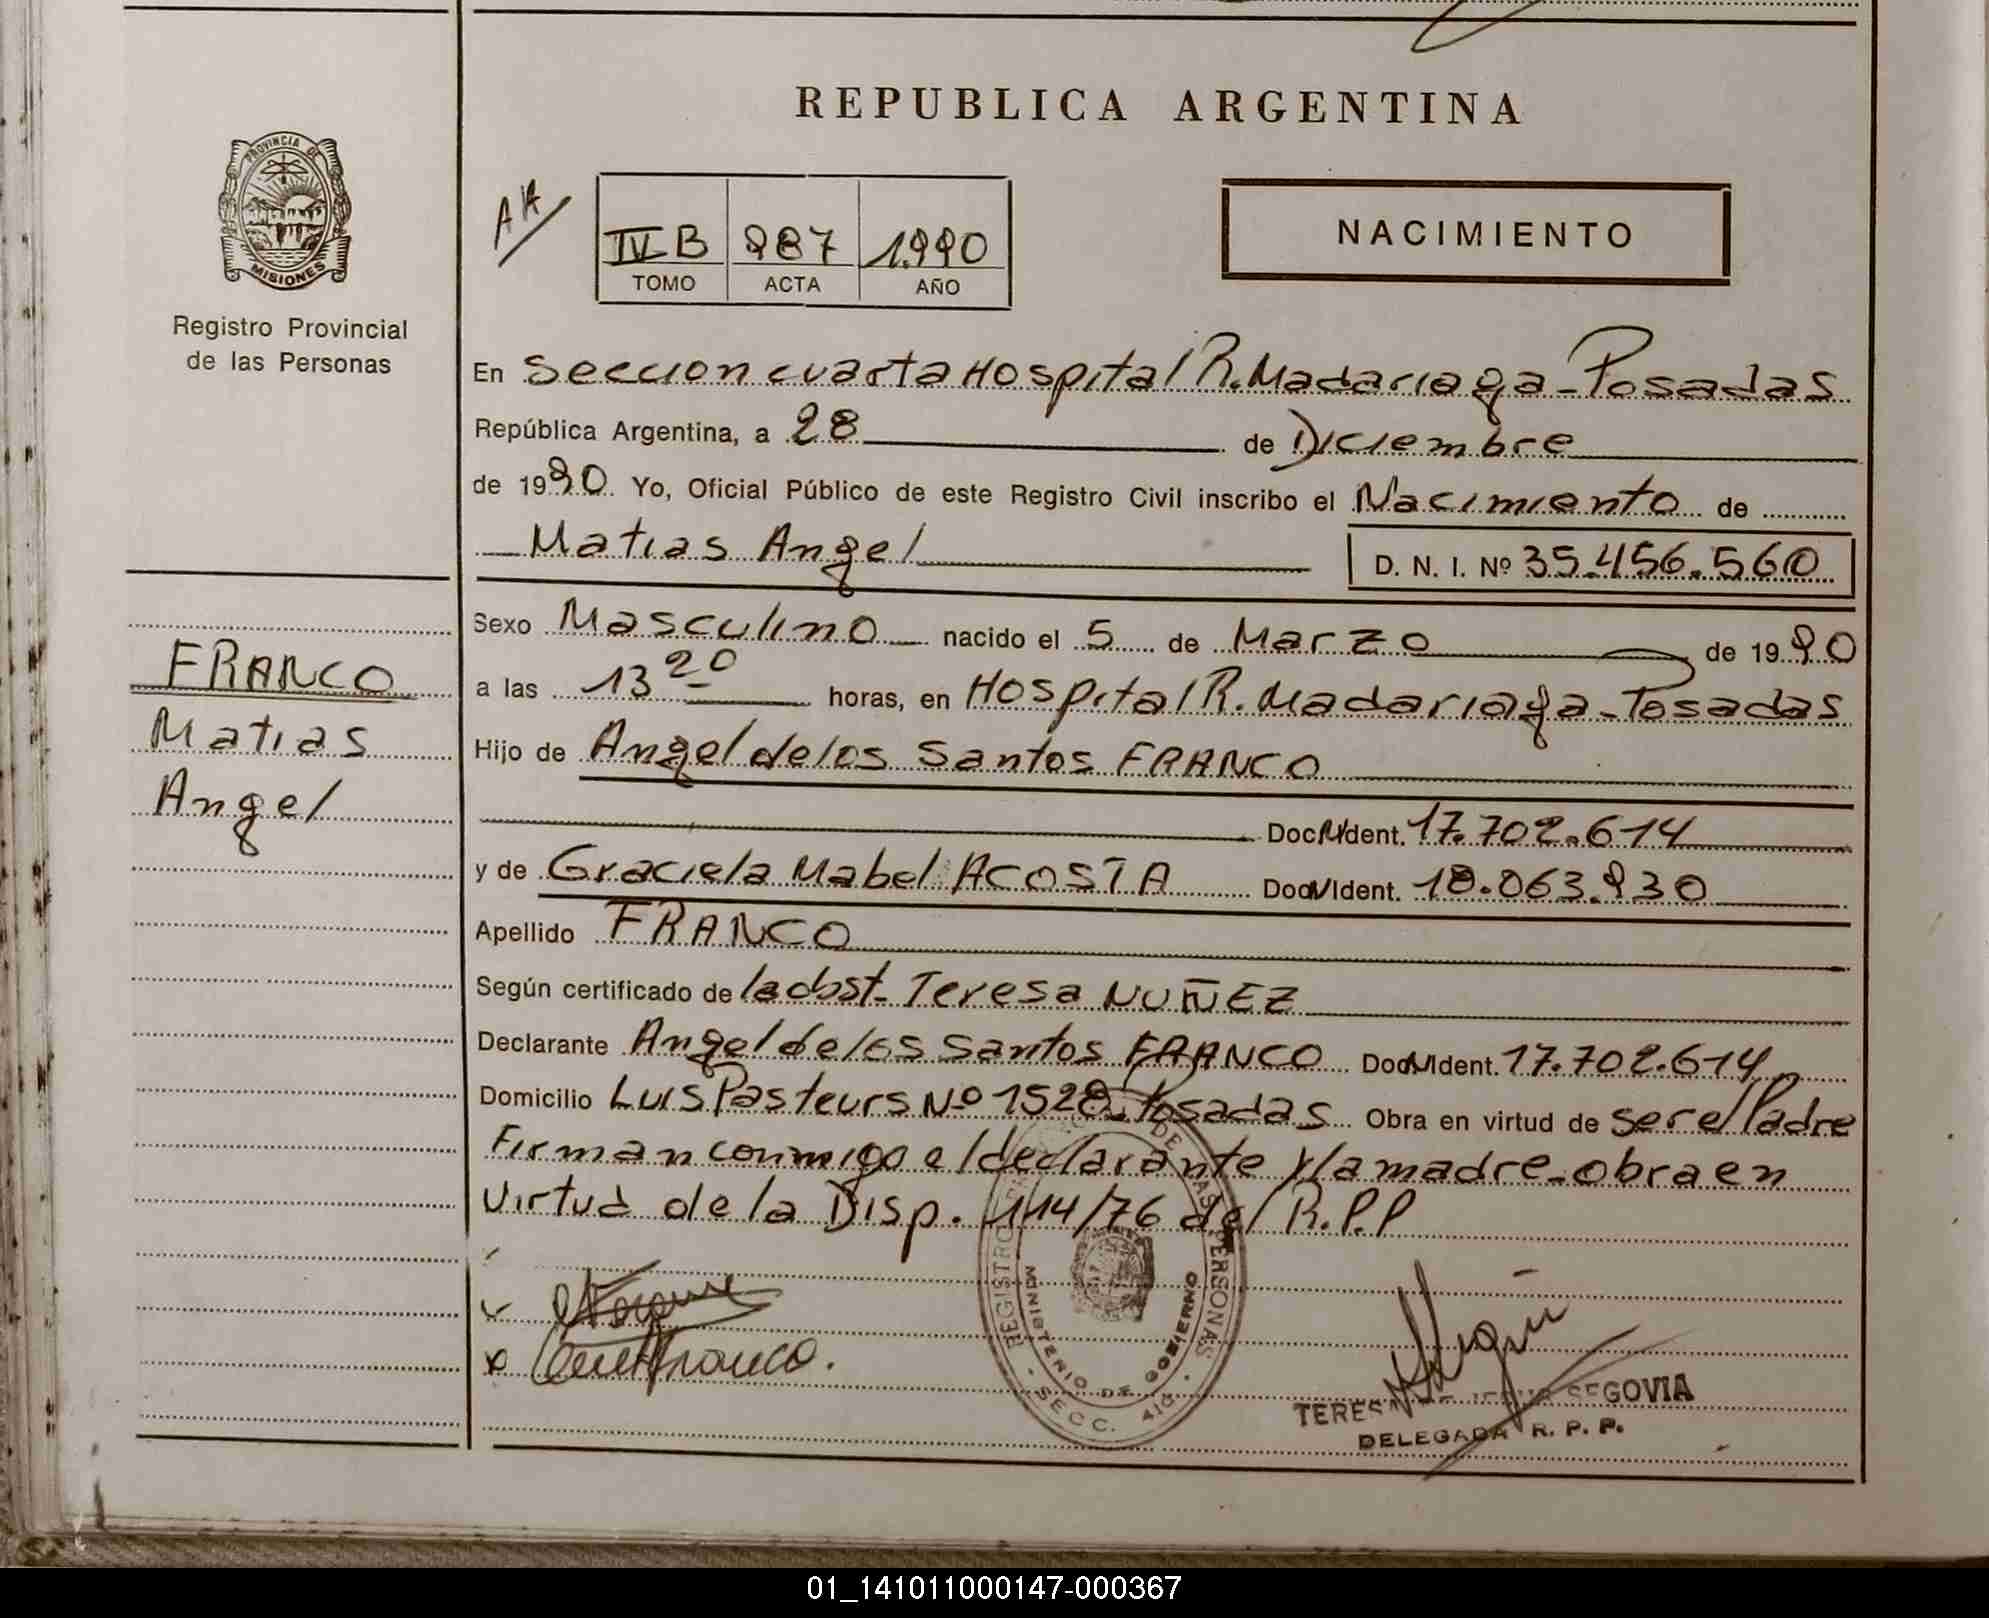 REPUBLICA ARGENTINA
PROVINCIA DE
MISIONES
Registro Provincial
de las Personas
AA
IV B 987 1.990
TOMO ACTA AÑO
NACIMIENTO
En Seccion cuarta Hospital R. Madariaga - Posadas
República Argentina, a 28 de Diciembre
de 1990 Yo, Oficial Público de este Registro Civil inscribo el Nacimiento de
Matias Angel D. N. I. Nº 35.456.560
Sexo Masculino nacido el 5 de Marzo de 1990
a las 13 20 horas, en Hospital R. Madariaga - Posadas
Hijo de Angel de los Santos FRANCO
Doc. N Ident. 17.702.614
y de Graciela Mabel ACOSTA Doc. N Ident. 18.063.930
Apellido FRANCO
Según certificado de la obst. Teresa NUÑEZ
Declarante Angel de los Santos FRANCO Doc. N Ident. 17.702.614
Domicilio Luis Pasteurs Nº 1528 - Posadas Obra en virtud de ser el Padre
Firman conmigo el declarante y la madre - obra en
virtud de la Disp. 114/76 del R.P.P
FRANCO
Matias
Angel
REGISTRO DE LAS PERSONAS
MINISTERIO DE GOBIERNO
SECC. 4ta.
Franco.
TERESA DE JESUS SEGOVIA
DELEGADA R. P. P.
01_141011000147-000367